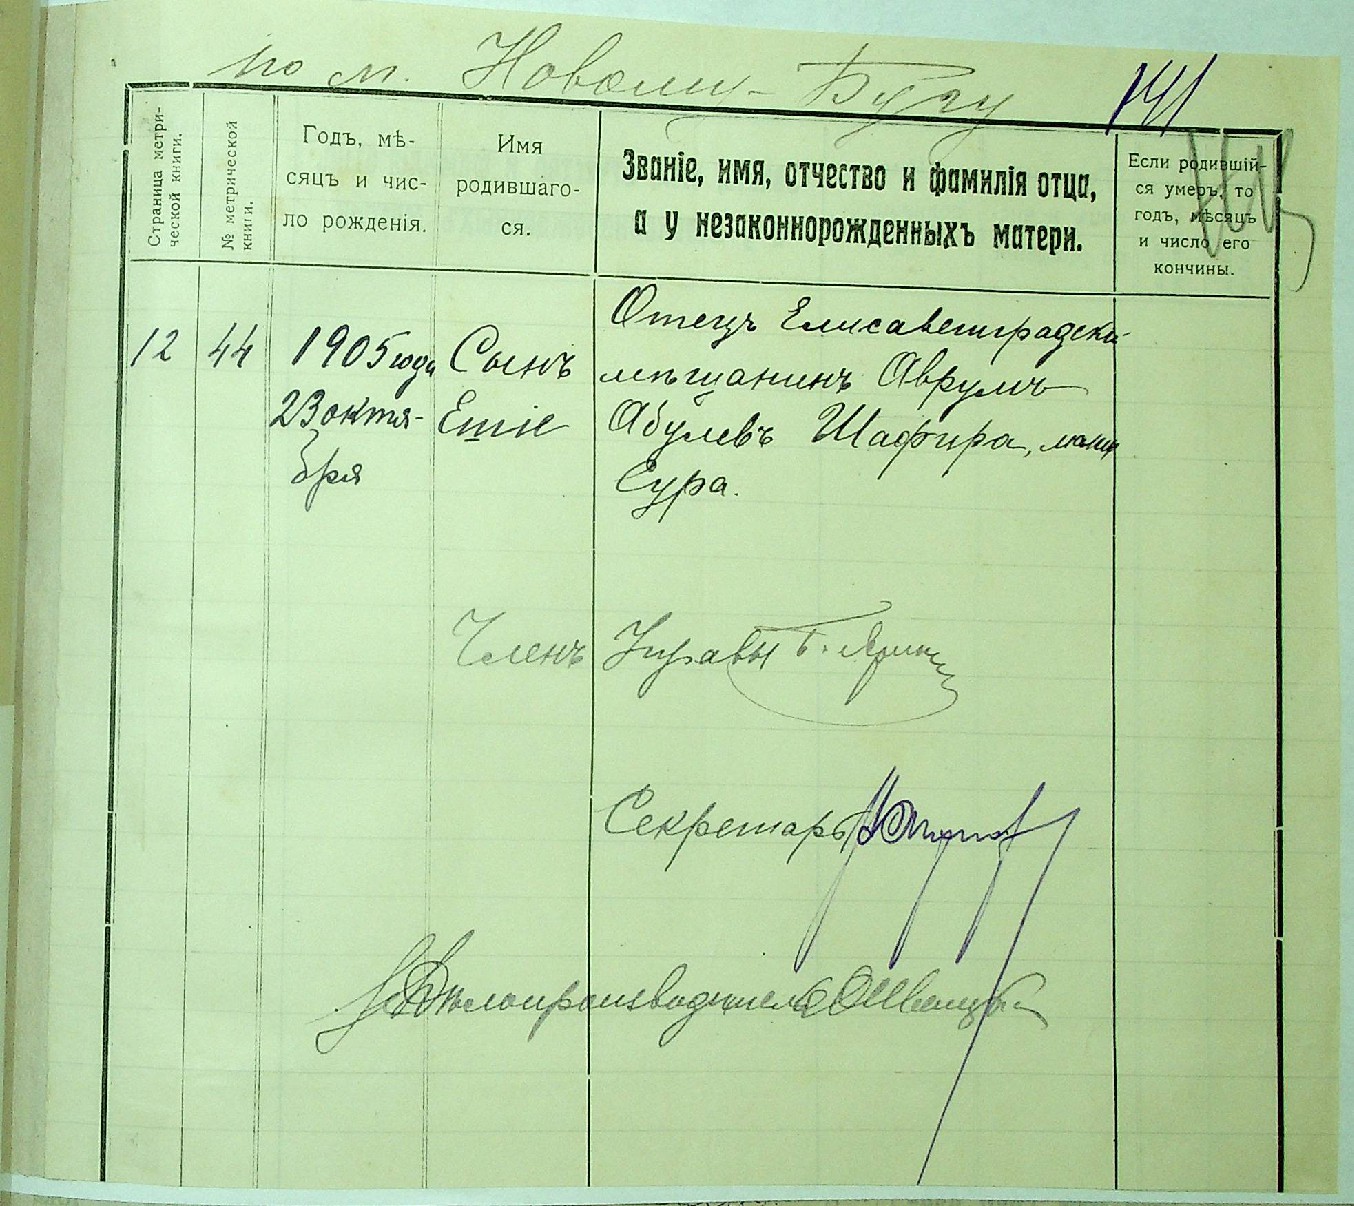 по м. Новому-Бугу
141
Страница метри-
ческой книги.
№ метрической
книги.
Годъ, мѣ-
сяцъ и чис-
ло рожденія.
Имя
родившаго-
ся.
Званіе, имя, отчество и фамилія отца,
а у незаконнорожденныхъ матери.
Если родившій-
ся умеръ, то
годъ, мѣсяцъ
и число его
кончины.
12
44
1905 года
23 октя-
бря
Сынъ
Ешіе
Отецъ Елисаветградскій
мѣщанинъ Аврумъ
Абулевъ Шафира, мать
Сура.
Членъ Управы
Секретарь
Дѣлопроизводитель